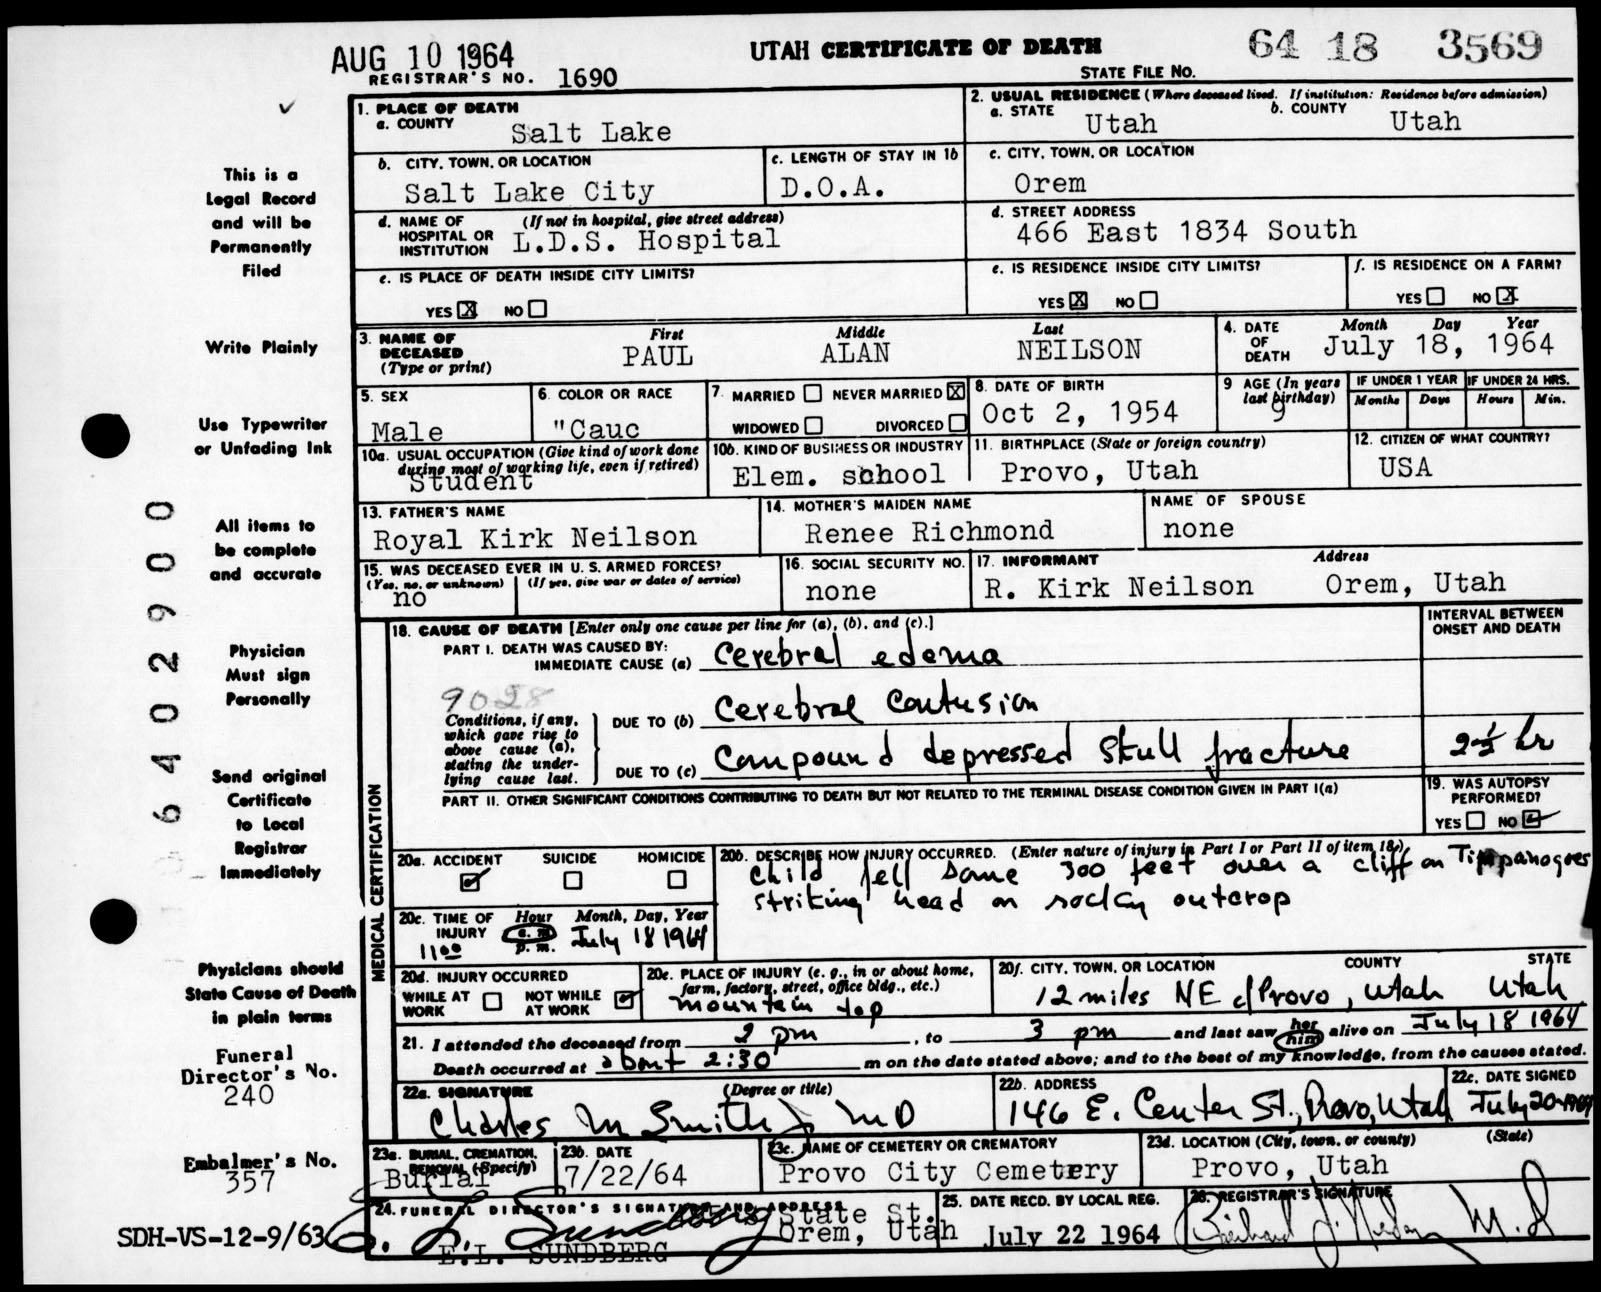 AUG 10 1964
UTAH CERTIFICATE OF DEATH
64 18 3569
REGISTRAR'S NO. 1690
STATE FILE NO.
This is a
Legal Record
and will be
Permanently
Filed
Write Plainly
Use Typewriter
or Unfading Ink
All items to
be complete
and accurate
Physician
Must sign
Personally
Send original
Certificate
to Local
Registrar
Immediately
Physicians should
State Cause of Death
in plain terms
Funeral
Director's No.
240
Embalmer's No.
357
SDH-VS-12-9/63
6402900
1. PLACE OF DEATH
a. COUNTY Salt Lake
2. USUAL RESIDENCE (Where deceased lived. If institution: Residence before admission)
a. STATE Utah b. COUNTY Utah
b. CITY, TOWN, OR LOCATION Salt Lake City
c. LENGTH OF STAY IN 1b D.O.A.
c. CITY, TOWN, OR LOCATION Orem
d. NAME OF HOSPITAL OR INSTITUTION (If not in hospital, give street address) L.D.S. Hospital
d. STREET ADDRESS 466 East 1834 South
e. IS PLACE OF DEATH INSIDE CITY LIMITS? YES X NO
e. IS RESIDENCE INSIDE CITY LIMITS? YES X NO
f. IS RESIDENCE ON A FARM? YES NO X
3. NAME OF DECEASED (Type or print) First Middle Last
PAUL ALAN NEILSON
4. DATE OF DEATH Month Day Year
July 18, 1964
5. SEX Male
6. COLOR OR RACE "Cauc
7. MARRIED NEVER MARRIED X
WIDOWED DIVORCED
8. DATE OF BIRTH Oct 2, 1954
9 AGE (In years last birthday) 9
IF UNDER 1 YEAR Months Days
IF UNDER 24 HRS. Hours Min.
10a. USUAL OCCUPATION (Give kind of work done during most of working life, even if retired) Student
10b. KIND OF BUSINESS OR INDUSTRY Elem. school
11. BIRTHPLACE (State or foreign country) Provo, Utah
12. CITIZEN OF WHAT COUNTRY? USA
13. FATHER'S NAME Royal Kirk Neilson
14. MOTHER'S MAIDEN NAME Renee Richmond
NAME OF SPOUSE none
15. WAS DECEASED EVER IN U. S. ARMED FORCES?
(Yes, no, or unknown) (If yes, give war or dates of service)
no
16. SOCIAL SECURITY NO. none
17. INFORMANT Address
R. Kirk Neilson Orem, Utah
MEDICAL CERTIFICATION
18. CAUSE OF DEATH [Enter only one cause per line for (a), (b), and (c).]
INTERVAL BETWEEN ONSET AND DEATH
PART I. DEATH WAS CAUSED BY:
IMMEDIATE CAUSE (a) Cerebral edema
9028
Conditions, if any, which gave rise to above cause (a), stating the underlying cause last.
DUE TO (b) Cerebral Contusion
DUE TO (c) Compound depressed skull fracture 2½ hr
PART II. OTHER SIGNIFICANT CONDITIONS CONTRIBUTING TO DEATH BUT NOT RELATED TO THE TERMINAL DISEASE CONDITION GIVEN IN PART I(a)
19. WAS AUTOPSY PERFORMED?
YES NO ✓
20a. ACCIDENT SUICIDE HOMICIDE
✓
20b. DESCRIBE HOW INJURY OCCURRED. (Enter nature of injury in Part I or Part II of item 18.)
Child fell some 300 feet over a cliff on Timpanogos
striking head on rocky outcrop
20c. TIME OF INJURY Hour Month, Day, Year
11:00 a.m. p.m. July 18 1964
20d. INJURY OCCURRED
WHILE AT WORK NOT WHILE AT WORK ✓
20e. PLACE OF INJURY (e. g., in or about home, farm, factory, street, office bldg., etc.)
mountain top
20f. CITY, TOWN, OR LOCATION COUNTY STATE
12 miles NE of Provo, Utah Utah
21. I attended the deceased from 2 pm, to 3 pm and last saw her him alive on July 18 1964
Death occurred at about 2:30 m on the date stated above; and to the best of my knowledge, from the causes stated.
22a. SIGNATURE (Degree or title)
Charles M Smith Jr MD
22b. ADDRESS 146 E. Center St., Provo, Utah
22c. DATE SIGNED July 20-1964
23a. BURIAL, CREMATION, REMOVAL (Specify) Burial
23b. DATE 7/22/64
23c. NAME OF CEMETERY OR CREMATORY Provo City Cemetery
23d. LOCATION (City, town, or county) (State)
Provo, Utah
24. FUNERAL DIRECTOR'S SIGNATURE AND ADDRESS
E. L. Sundberg State St.
Orem, Utah
E.L. SUNDBERG
25. DATE RECD. BY LOCAL REG. July 22 1964
26. REGISTRAR'S SIGNATURE
M.D